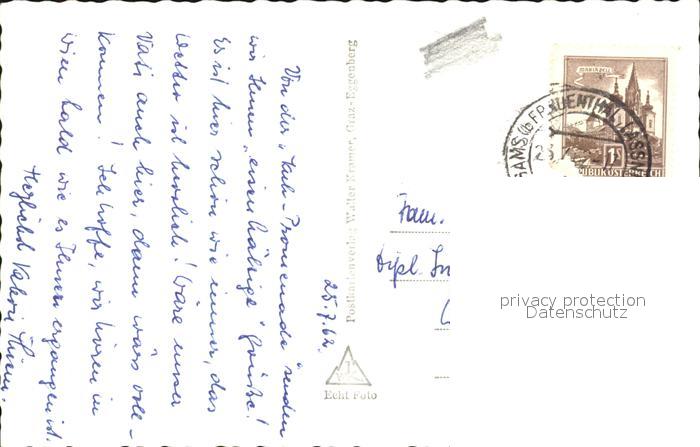 25.7.62.
Von der „Kuh-Promenade" senden
wir Ihnen „eisenhaltige" Grüße!
Es ist hier schön wie immer, das
Wetter ist herrlich! Wäre unser
Vati auch hier, dann wärs voll-
kommen! Ich hoffe, wir hören in
Wien bald wie es Ihnen ergangen ist.
Herzlichst
Postkartenverlag Walter Kramer, Graz-Eggenberg
Echt Foto
MARIAZELL
1S
REPUBLIK ÖSTERREICH
GAMS üb FRAUENTHAL LASSN
Fam.
Dipl. In
privacy protection
Datenschutz